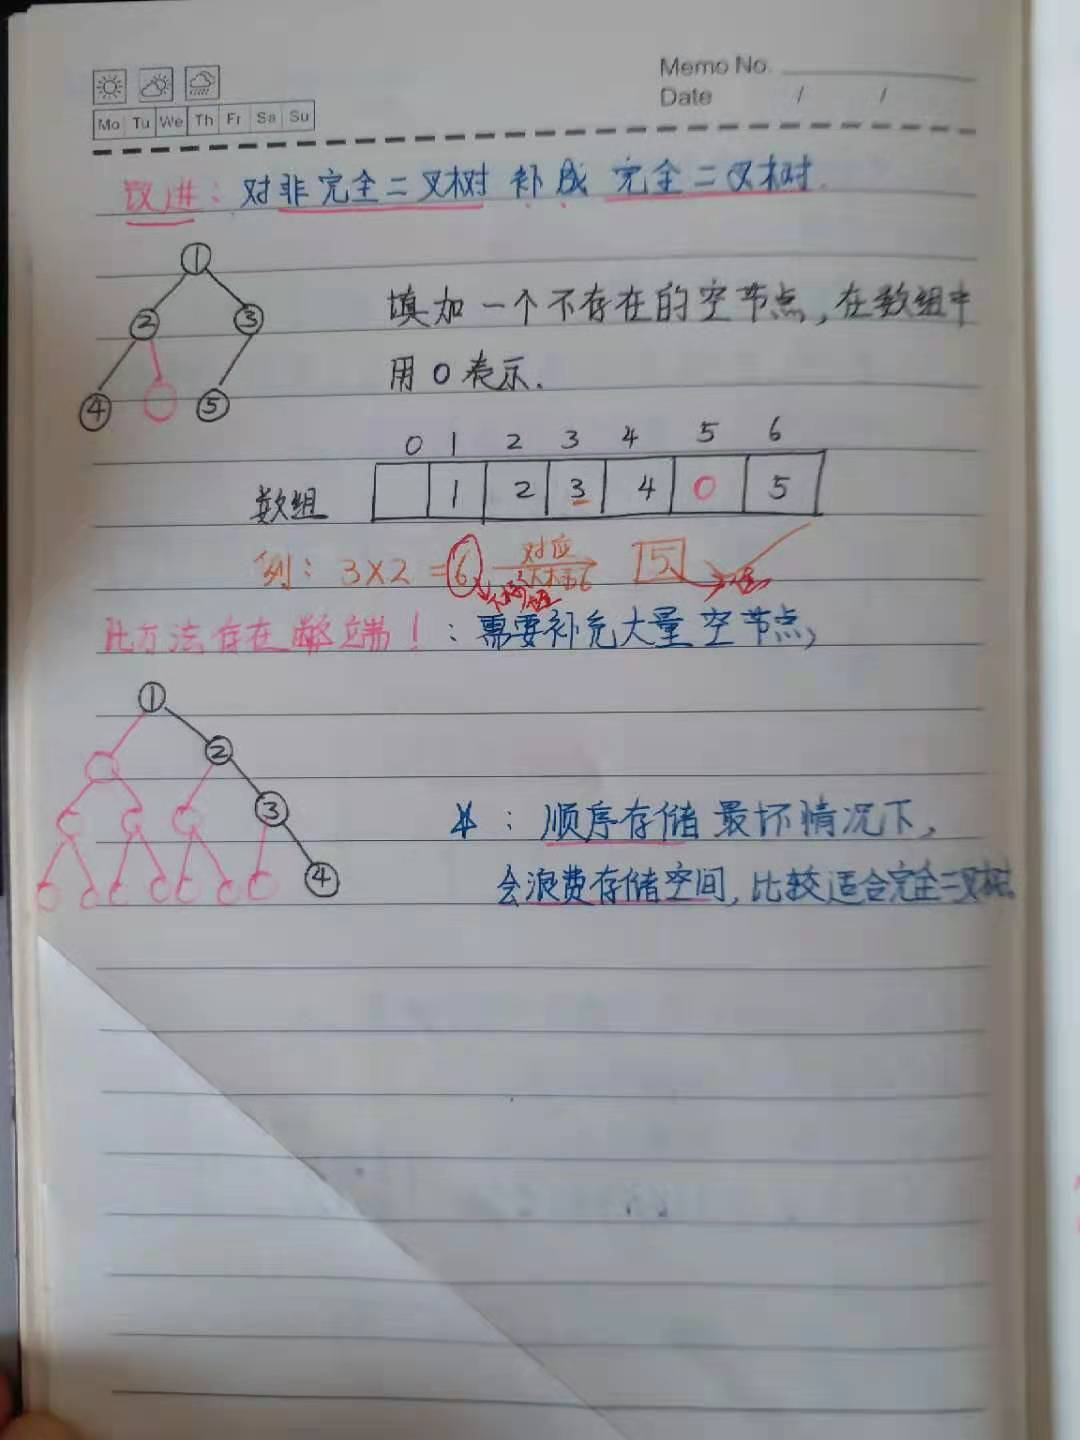 Memo No.
Date / /
Mo Tu We Th Fr Sa Su
改进：对非完全二叉树 补成 完全二叉树.
1
2 3
4 5
填加一个不存在的空节点，在数组中
用 0 表示.
0 1 2 3 4 5 6
数组 1 2 3 4 0 5
例：3×2 = 6 对应 5
下标 6
此方法存在弊端！：需要补充大量空节点，
1
2
3
4
顺序存储最坏情况下，
会浪费存储空间，比较适合完全二叉树。